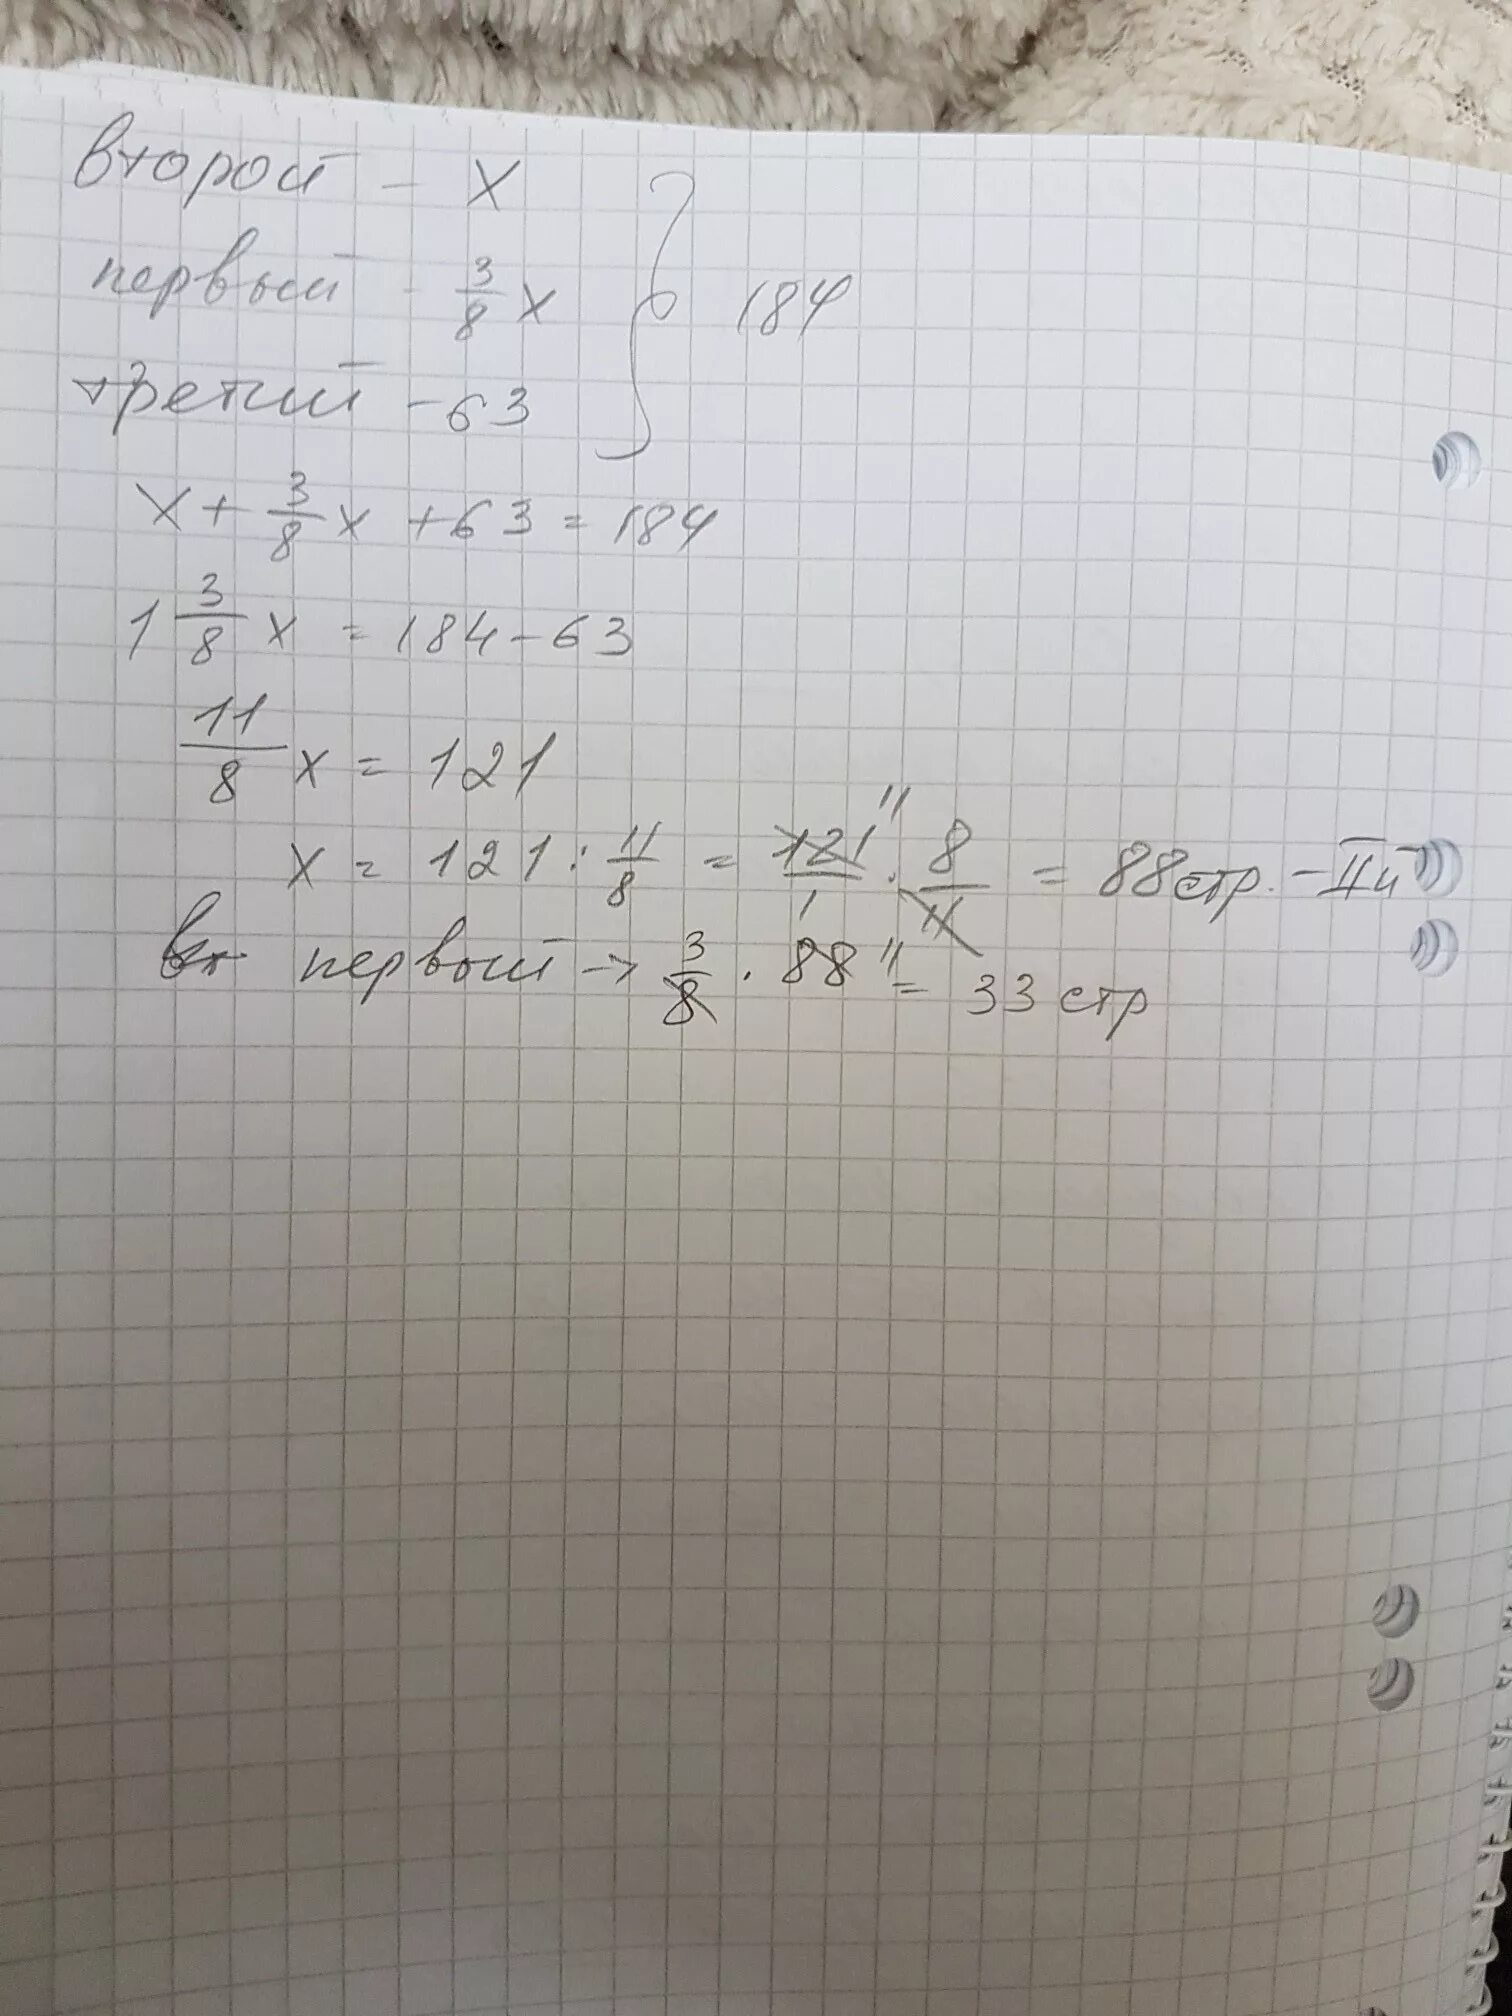 второй - x
первый - 3/8 x } 184
третий - 63
x + 3/8 x + 63 = 184
1 3/8 x = 184 - 63
11/8 x = 121
x = 121 : 11/8 = 121/1 11 · 8/11 = 88 стр. - II й
вт первый → 3/8 · 88 11 = 33 стр